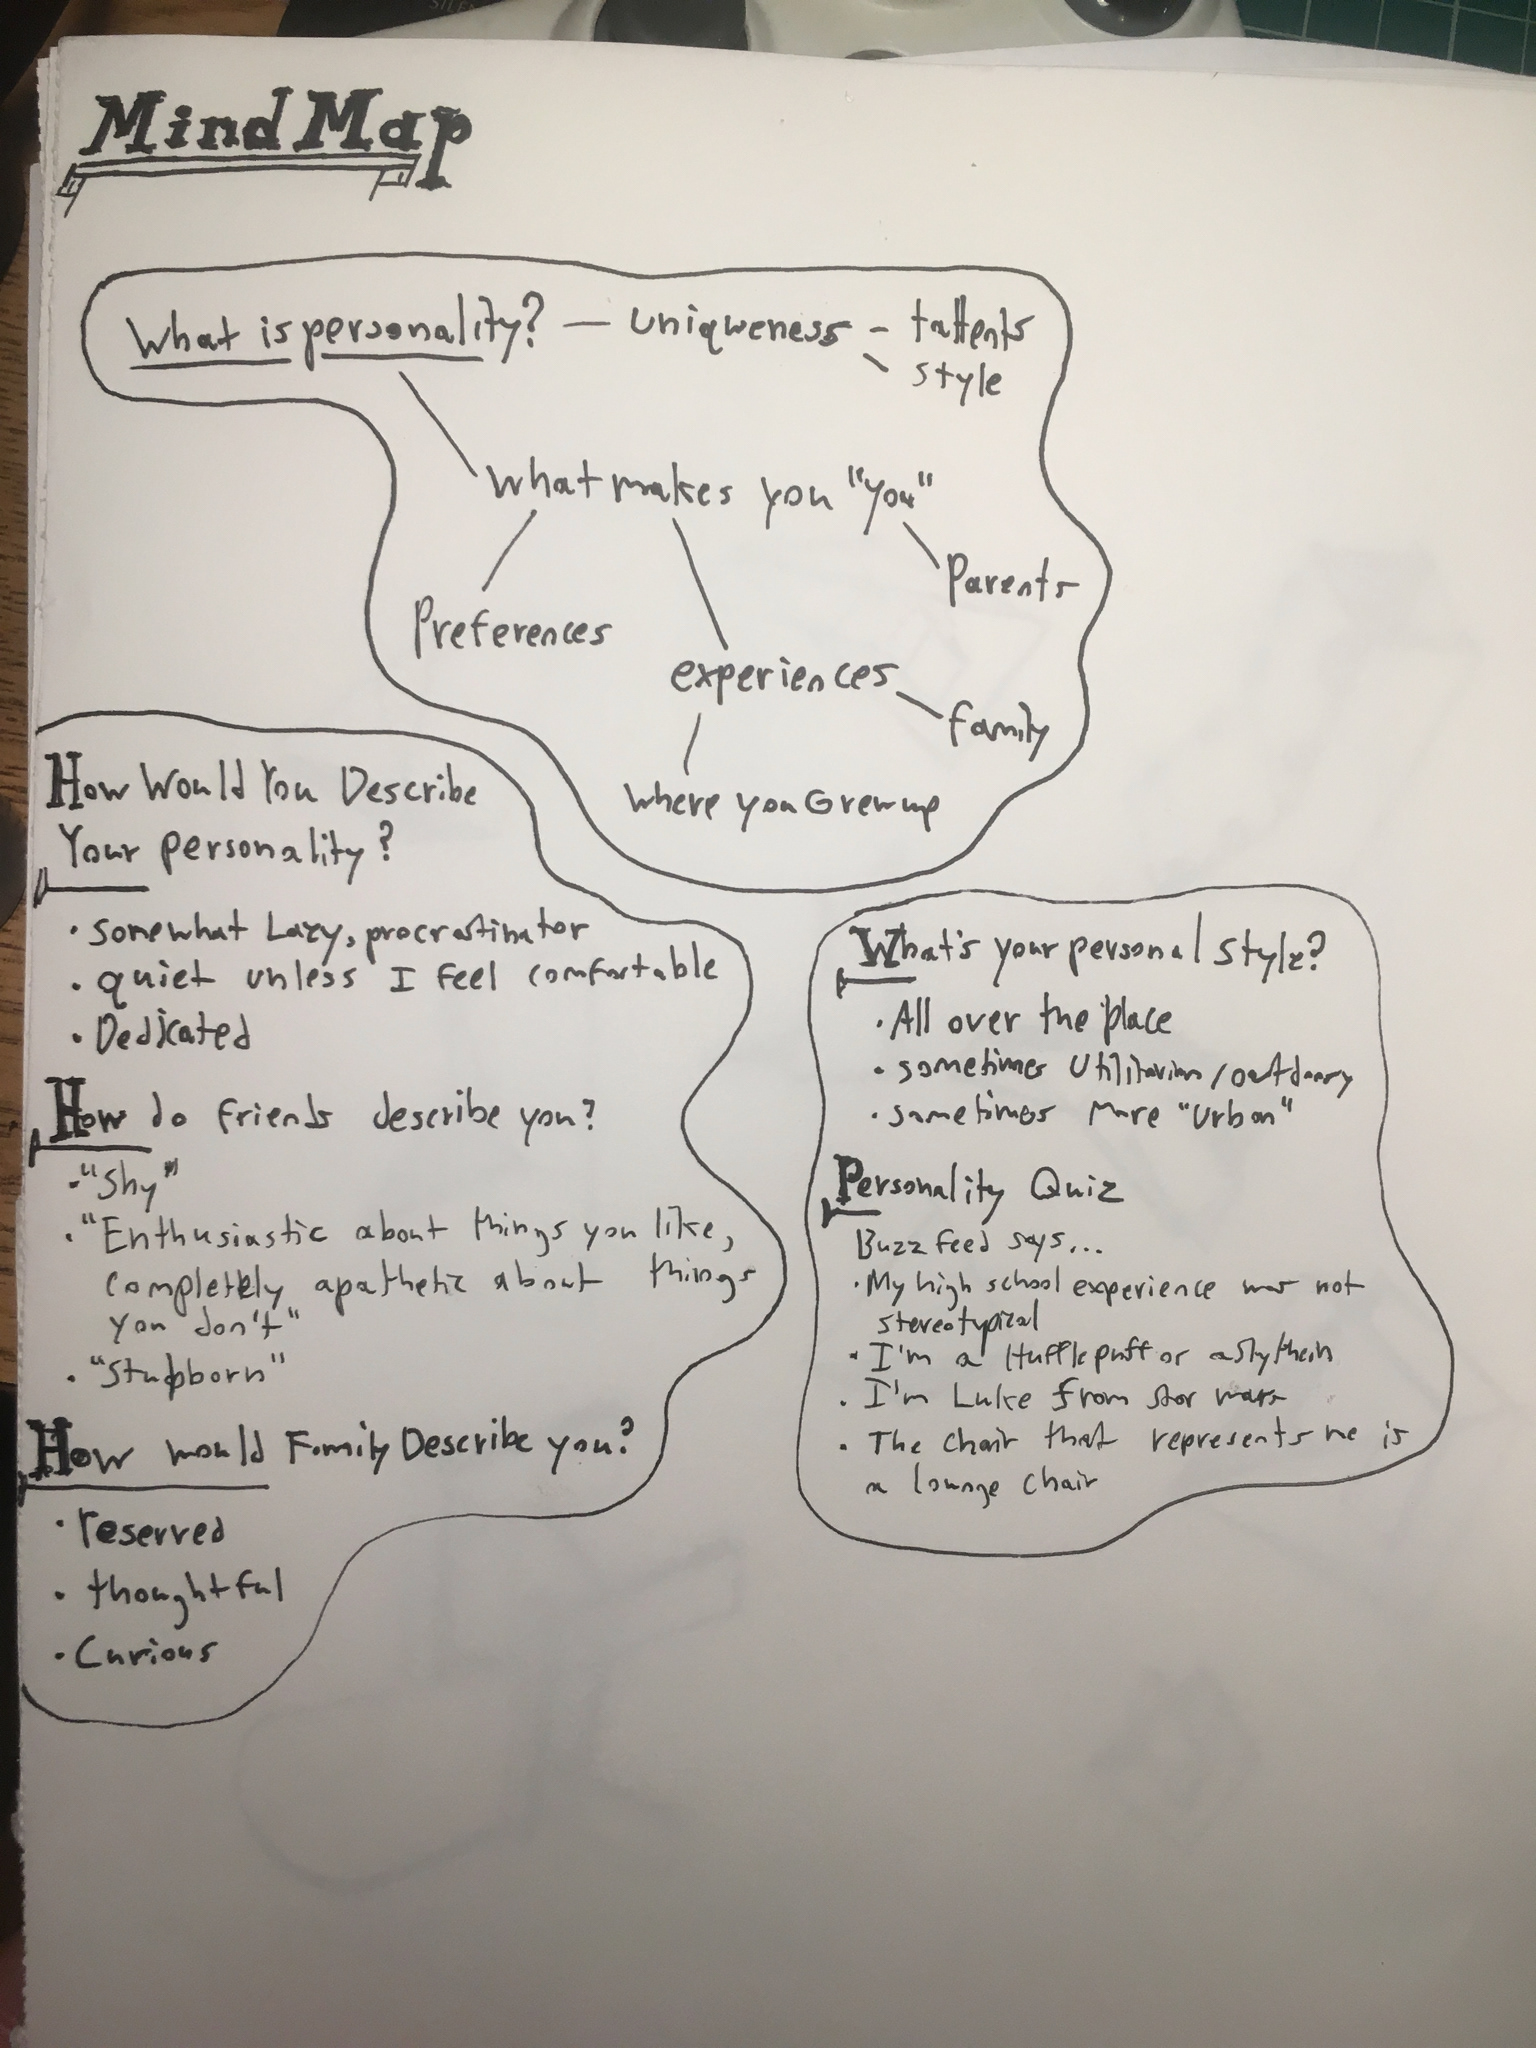 Mind Map
What is personality? — uniqweness - tallents
style
What makes you "you"
Parents
Preferences
experiences
family
where you Grew up
How Would You Describe
Your personality?
· somewhat Lazy, procrastinator
· quiet unless I feel comfortable
· Dedicated
How do friends describe you?
· "Shy"
· "Enthusiastic about things you like,
completely apathetic about things
you don't"
· "Stubborn"
How would Family Describe you?
· reserved
· thoughtful
· Curious
What's your personal style?
· All over the place
· sometimes Utilitarian/outdoory
· sometimes more "Urban"
Personality Quiz
Buzzfeed says...
· My high school experience was not
stereotypical
· I'm a Hufflepuff or a
· I'm Luke from star wars
· The chair that represents me is
a lounge chair